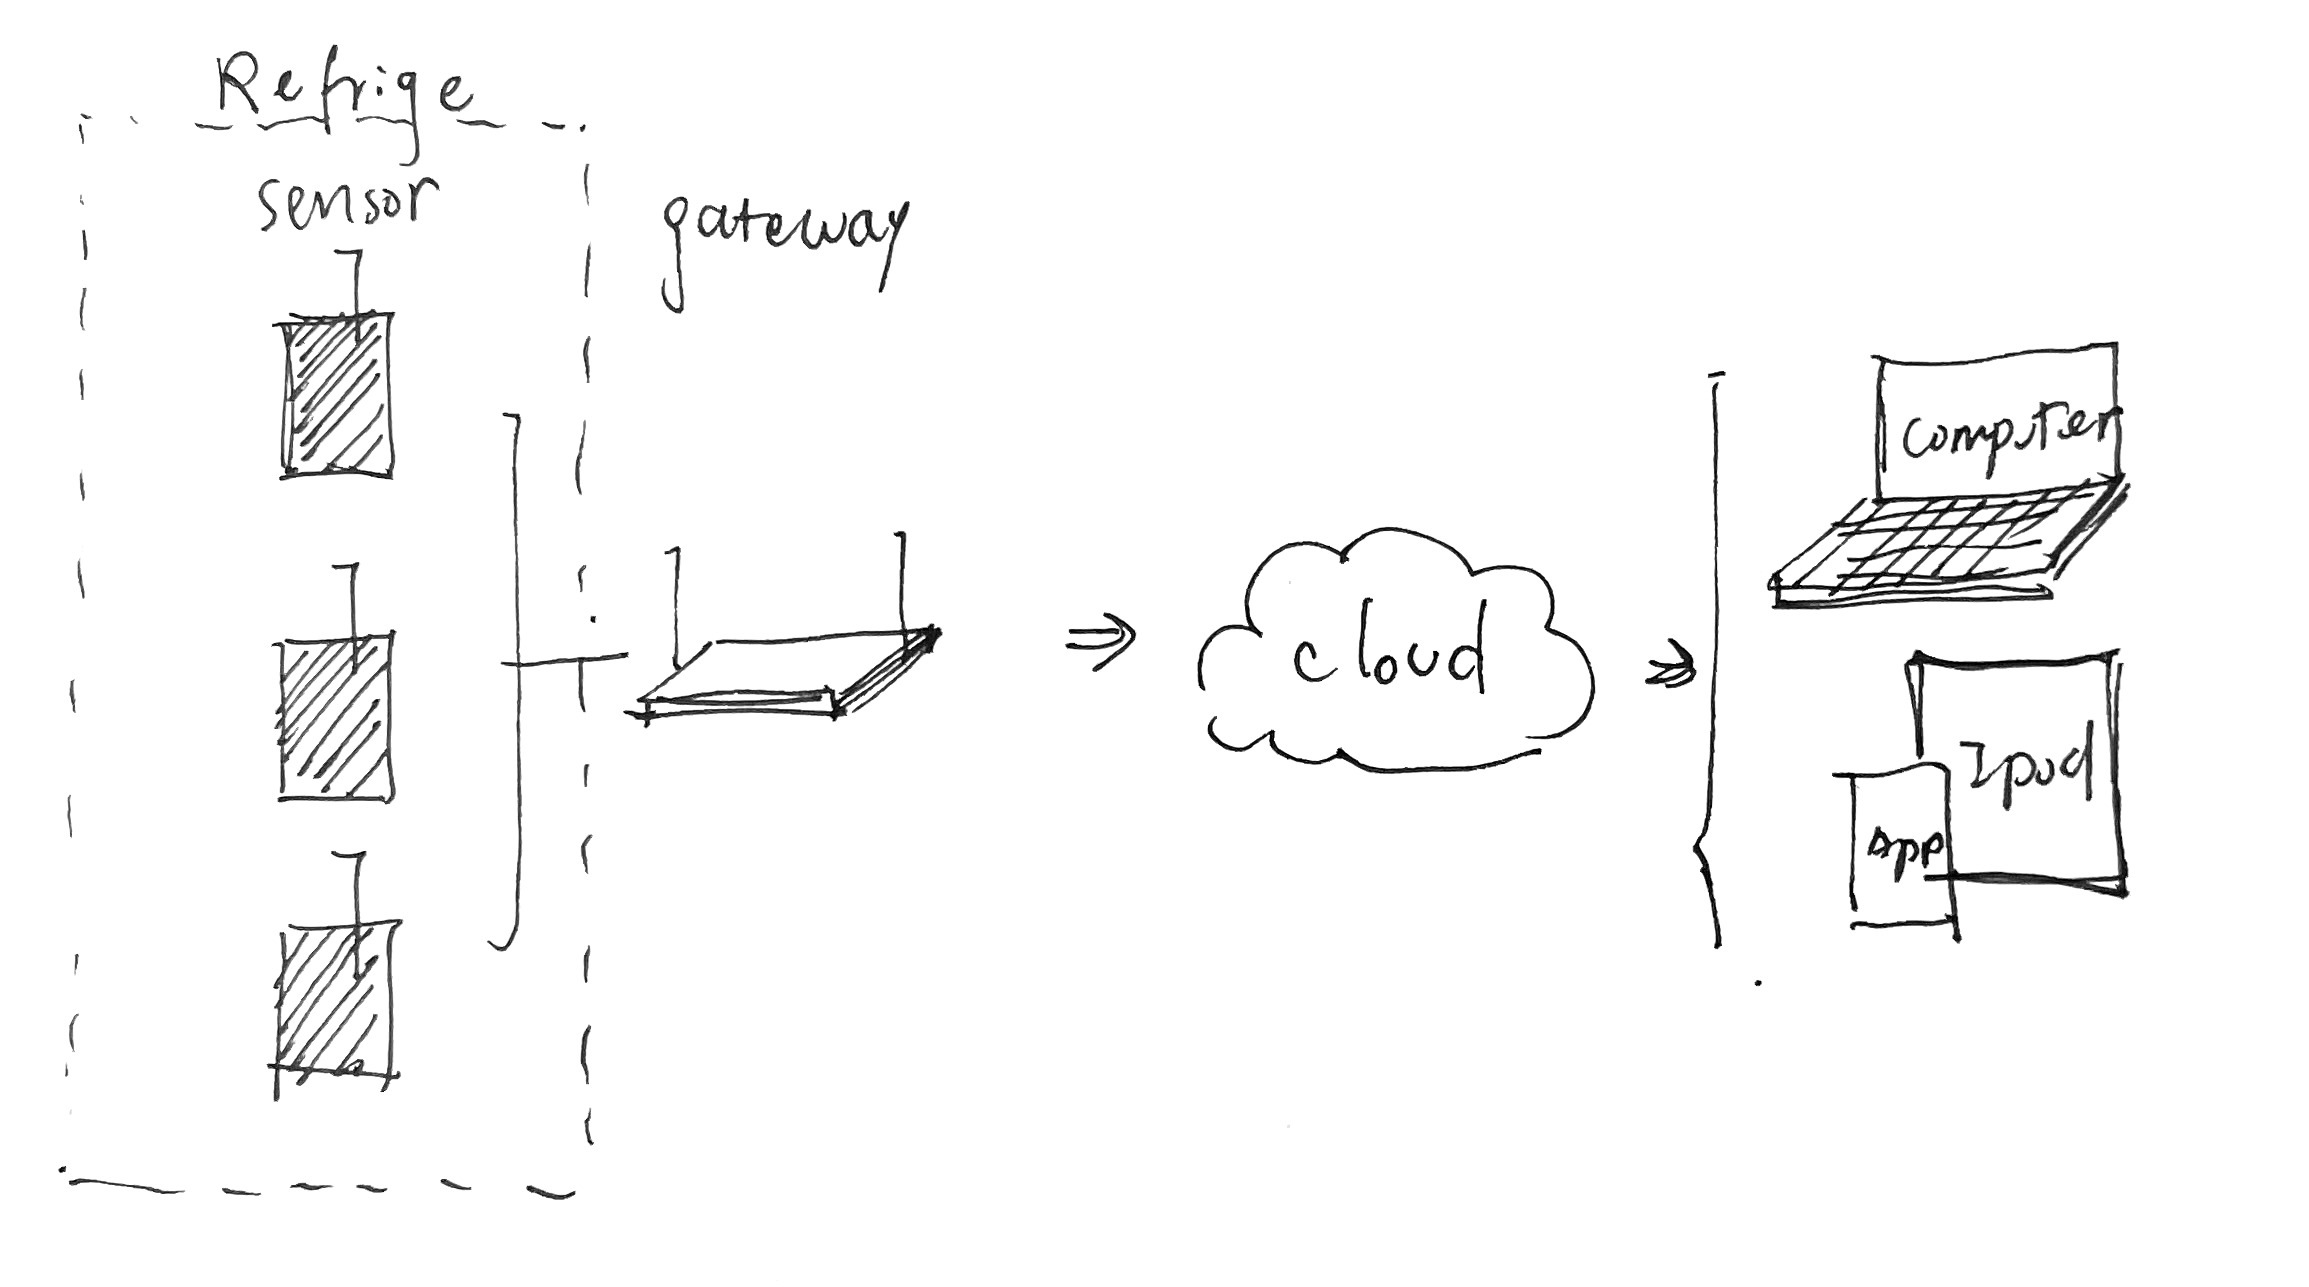 Refrige
sensor
gateway
cloud
computer
Ipod
App